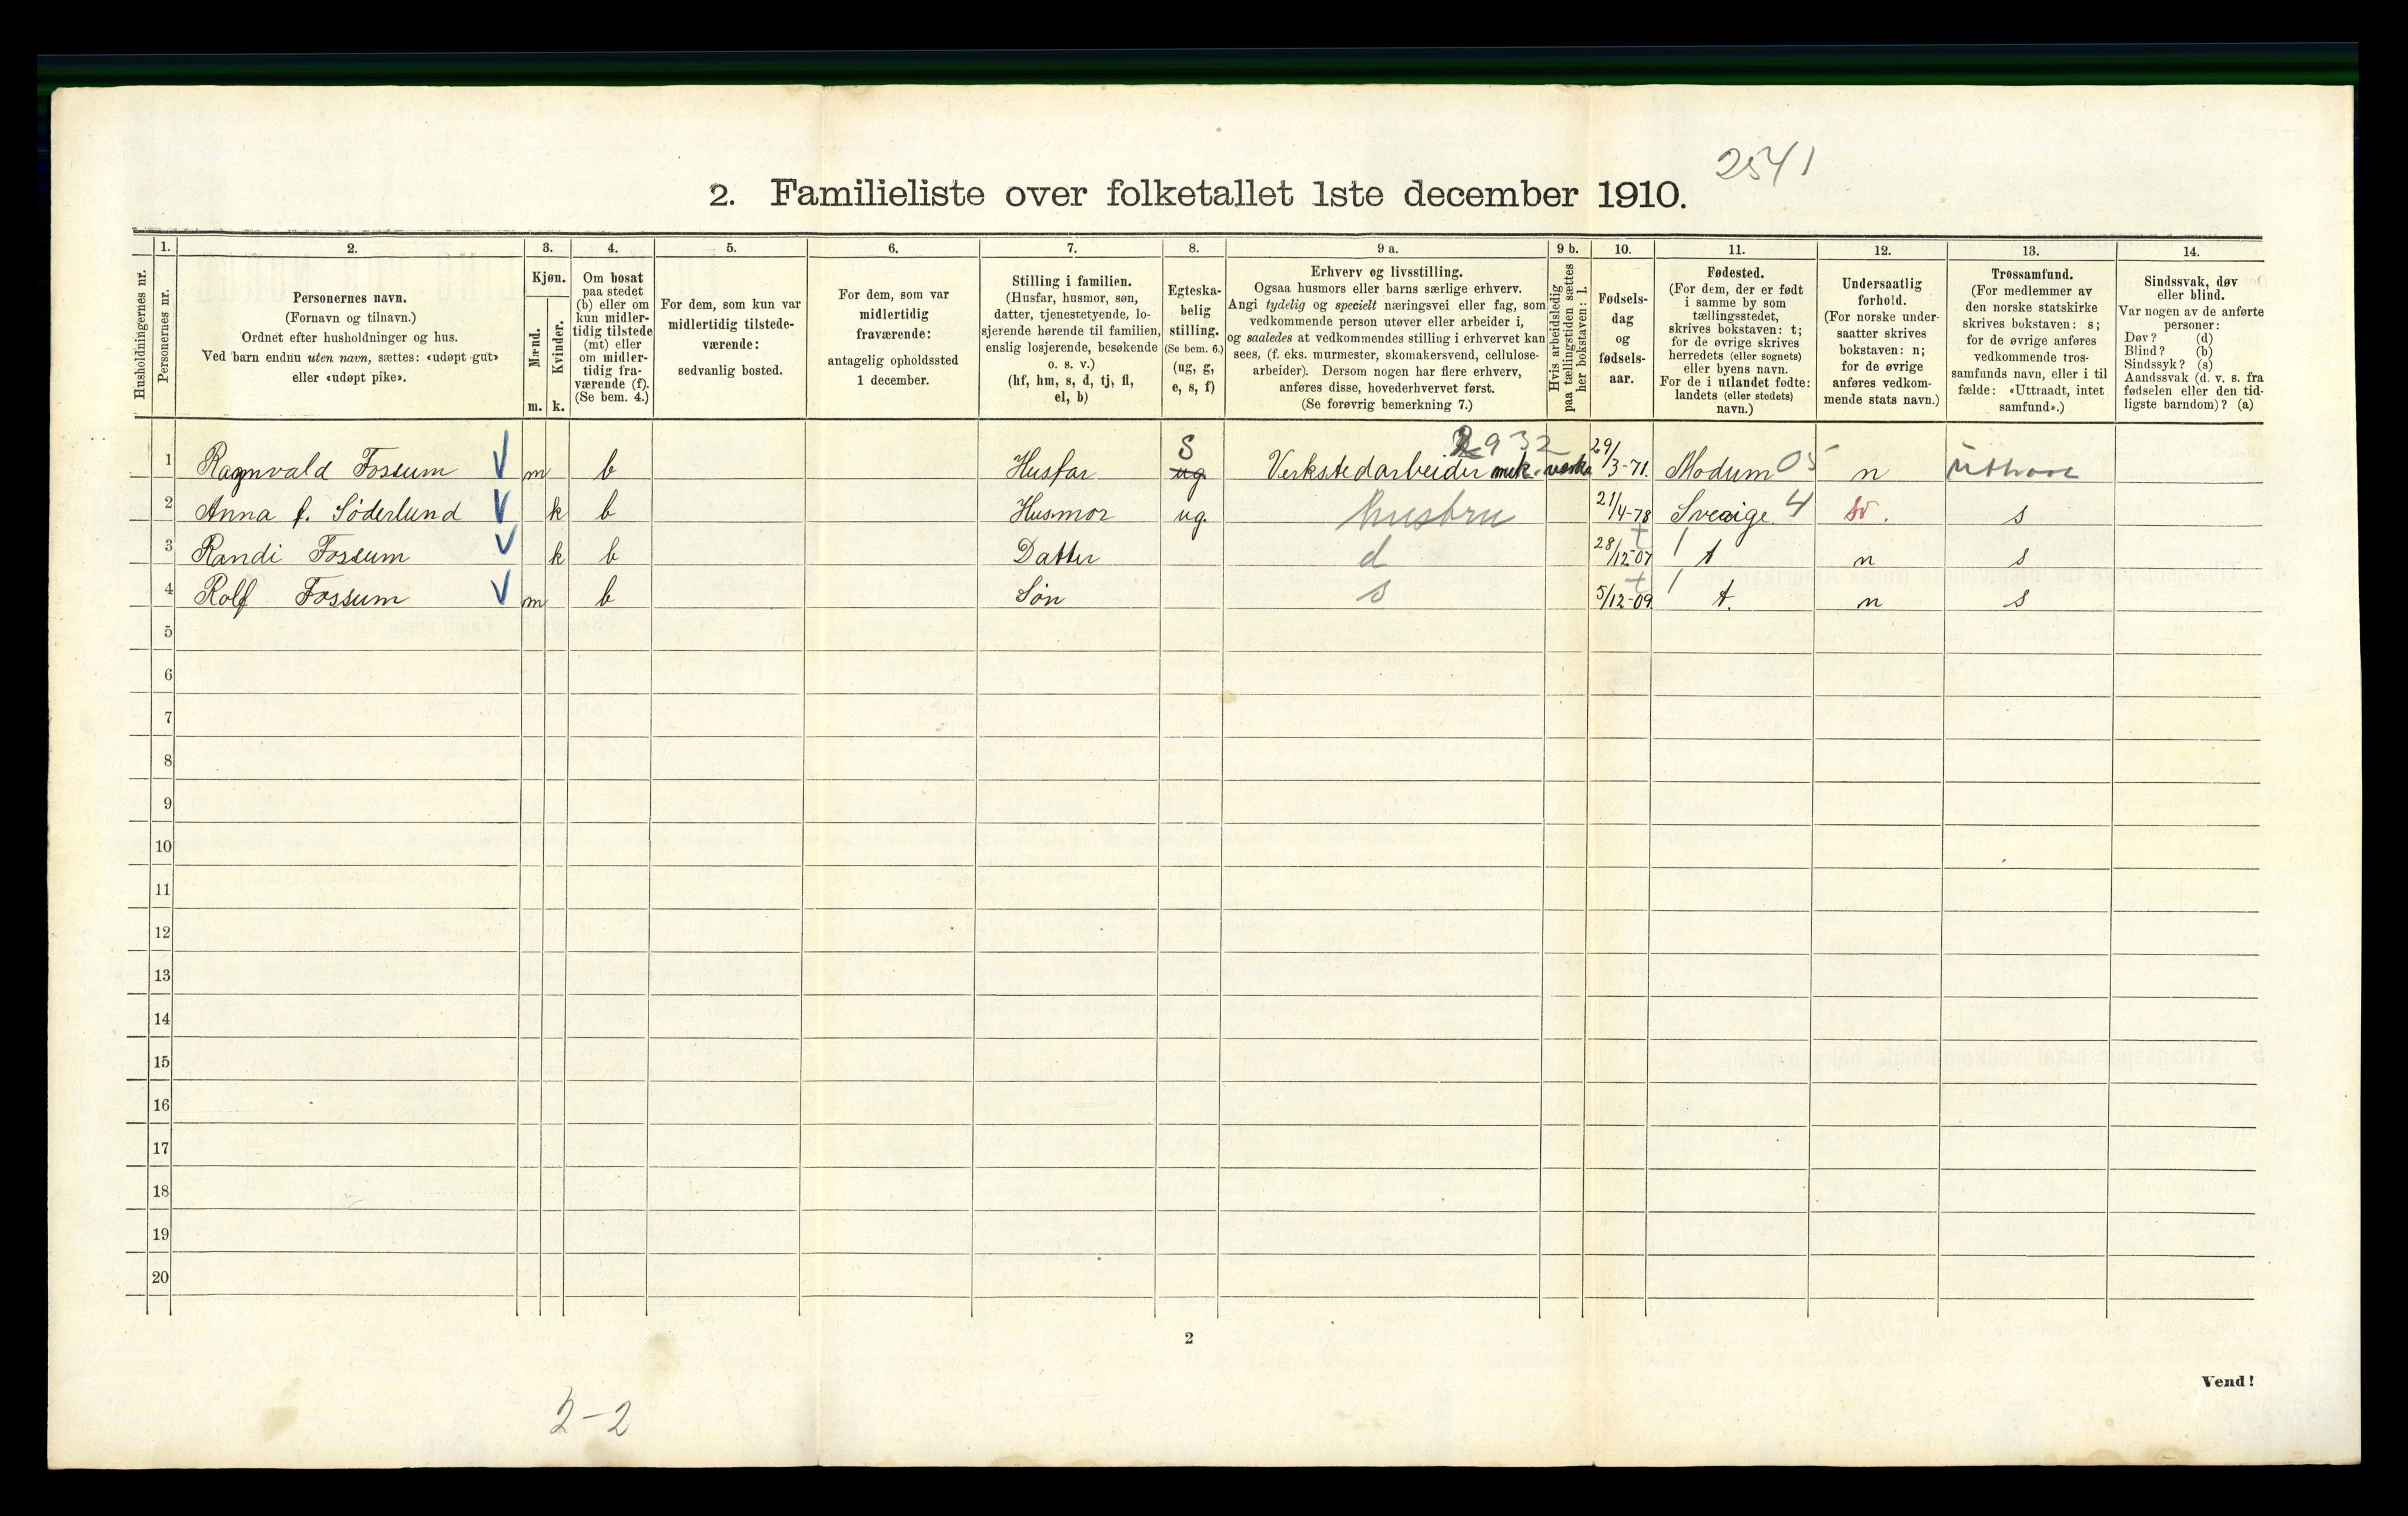 2541
2. Familieliste over folketallet 1ste december 1910.
Husholdningernes nr.
1.
Personernes nr.
2.
Personernes navn.
(Fornavn og tilnavn.)
Ordnet efter husholdninger og hus.
Ved barn endnu uten navn, sættes: «udøpt gut»
eller «udøpt pike».
3.
Kjøn.
Mænd.
Kvinder.
m. k.
4.
Om bosat
paa stedet
(b) eller om
kun midler-
tidig tilstede
(mt) eller
om midler-
tidig fra-
værende (f).
(Se bem. 4.)
5.
For dem, som kun var
midlertidig tilstede-
værende:
sedvanlig bosted.
6.
For dem, som var
midlertidig
fraværende:
antagelig opholdssted
1 december.
7.
Stilling i familien.
(Husfar, husmor, søn,
datter, tjenestetyende, lo-
sjerende hørende til familien,
enslig losjerende, besøkende
o. s. v.)
(hf, hm, s, d, tj, fl,
el, b)
8.
Egteska-
belig
stilling.
(Se bem. 6.)
(ug, g,
e, s, f)
9 a.
Erhverv og livsstilling.
Ogsaa husmors eller barns særlige erhverv.
Angi tydelig og specielt næringsvei eller fag, som
vedkommende person utøver eller arbeider i,
og saaledes at vedkommendes stilling i erhvervet kan
sees, (f. eks. murmester, skomakersvend, cellulose-
arbeider). Dersom nogen har flere erhverv,
anføres disse, hovederhvervet først.
(Se forøvrig bemerkning 7.)
9 b.
Hvis arbeidsledig
paa tællingstiden sættes
her bokstaven: l.
10.
Fødsels-
dag
og
fødsels-
aar.
11.
Fødested.
(For dem, der er født
i samme by som
tællingsstedet,
skrives bokstaven: t;
for de øvrige skrives
herredets (eller sognets)
eller byens navn.
For de i utlandet fødte:
landets (eller stedets)
navn.)
12.
Undersaatlig
forhold.
(For norske under-
saatter skrives
bokstaven: n;
for de øvrige
anføres vedkom-
mende stats navn.)
13.
Trossamfund.
(For medlemmer av
den norske statskirke
skrives bokstaven: s;
for de øvrige anføres
vedkommende tros-
samfunds navn, eller i til
fælde: «Uttraadt, intet
samfund».)
14.
Sindssvak, døv
eller blind.
Var nogen av de anførte
personer:
Døv? (d)
Blind? (b)
Sindssyk? (s)
Aandssvak (d. v. s. fra
fødselen eller den tid-
ligste barndom)? (a)
1 Ragnvald Fossum V m b Husfar S ug Verkstedarbeider mek. 932 29/3-71. Modum 05 n
2 Anna f. Söderlund V k b Husmor ug. husbru 21/4-78 Sveaige. 4 sv. s
3 Randi Fossum V k b Datter d 28/12-07 t n s
4 Rolf Fossum V m b Søn s 5/12-09. t. n s
5
6
7
8
9
10
11
12
13
14
15
16
17
18
19
20
2
Vend!
2-2